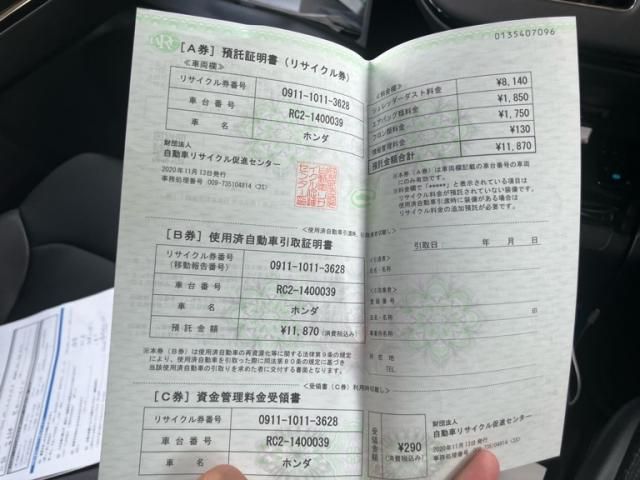 0135407096
[A券] 預託証明書 (リサイクル券)
≪車両欄≫
リサイクル券番号 0911-1011-3628
車台番号 RC2-1400039
車名 ホンダ
財団法人
自動車リサイクル促進センター
2020年11月13日発行
≪料金欄≫
シュレッダーダスト料金 ¥8,140
エアバッグ類料金 ¥1,850
フロン類料金 ¥1,750
情報管理料金 ¥130
預託金額合計 ¥11,870
※本券（A券）は車両欄記載の車台番号の車両
にのみ有効です。
※料金欄で「*****」と表示されている項目は
リサイクル料金が預託されていない装備です。
使用済自動車引渡時に装備がある場合は
リサイクル料金の追加預託が必要です。
[B券] 使用済自動車引取証明書
リサイクル券番号
(移動報告番号) 0911-1011-3628
車台番号 RC2-1400039
車名 ホンダ
預託金額 ¥11,870 (消費税込み)
※本券（B券）は使用済自動車の再資源化等に関する法律第9条の規定
により、使用済自動車を引取った際に同法第80条の規定に基づき
当該使用済自動車の引取りを求めた者に交付する書面となります。
引取日 年 月 日
氏名・名称
登録番号
氏名・名称 印
事業所名
所在地
TEL.
<受領書（C券）利用時切離し>
[C券] 資金管理料金受領書
リサイクル券番号 0911-1011-3628
車台番号 RC2-1400039
車名 ホンダ
受領金額 ¥290
(消費税込み)
財団法人
自動車リサイクル促進センター
2020年11月13日発行